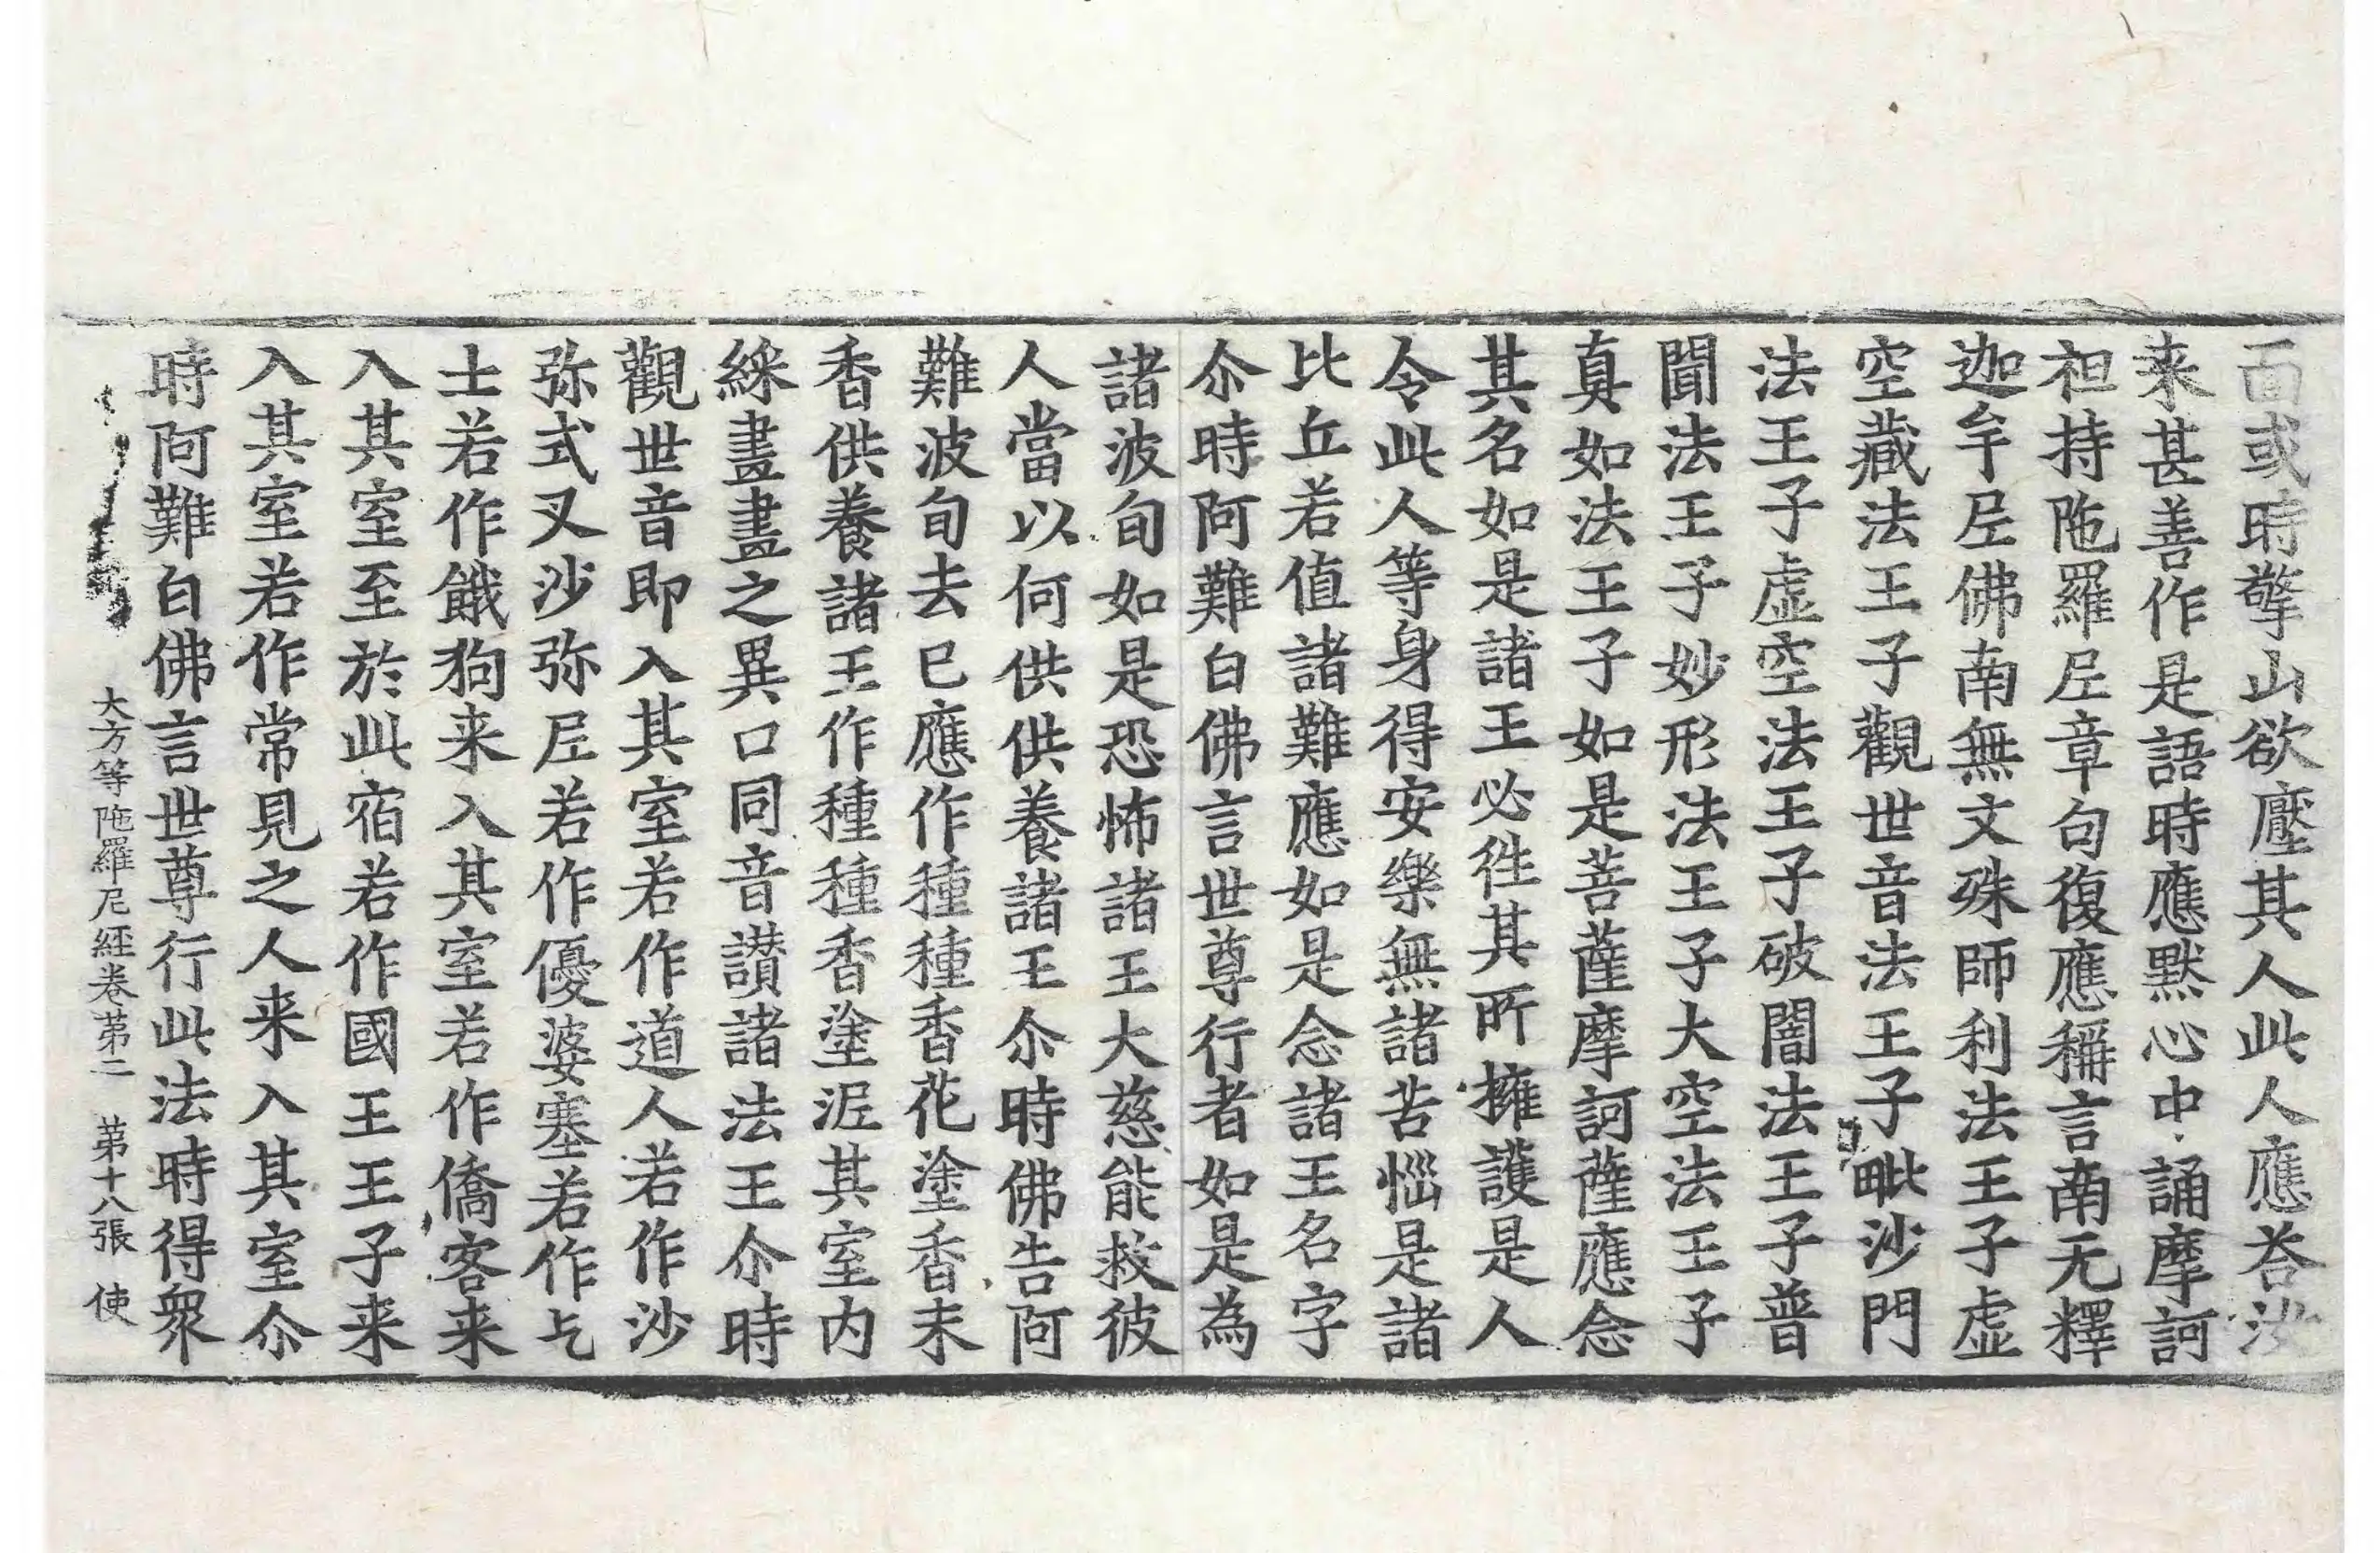 面或時擎山欲壓其人此人應荅汝
来甚善作是語時應默心中誦摩訶
袒持陁羅尼章句復應稱言南无釋
迦牟尼佛南無文殊師利法王子虚
空藏法王子觀世音法王子毗沙門
法王子虚空法王子破闇法王子普
聞法王子妙形法王子大空法王子
真如法王子如是菩薩摩訶薩應念
其名如是諸王必徃其所擁護是人
令此人等身得安樂無諸苦惱是諸
比丘若值諸難應如是念諸王名字
尒時阿難白佛言世尊行者如是為
諸波旬如是恐怖諸王大慈能救彼
人當以何供供養諸王尒時佛告阿
難波旬去已應作種種香花塗香末
香供養諸王作種種香塗泥其室内
綵畫畫之異口同音讃諸法王尒時
觀世音即入其室若作道人若作沙
弥式叉沙弥尼若作優婆塞若作乞
士若作餓狗来入其室若作僑客来
入其室至於此宿若作國王王子来
入其室若作常見之人来入其室尒
時阿難白佛言世尊行此法時得衆
大方等陁羅尼經卷苐二 苐十八張 使